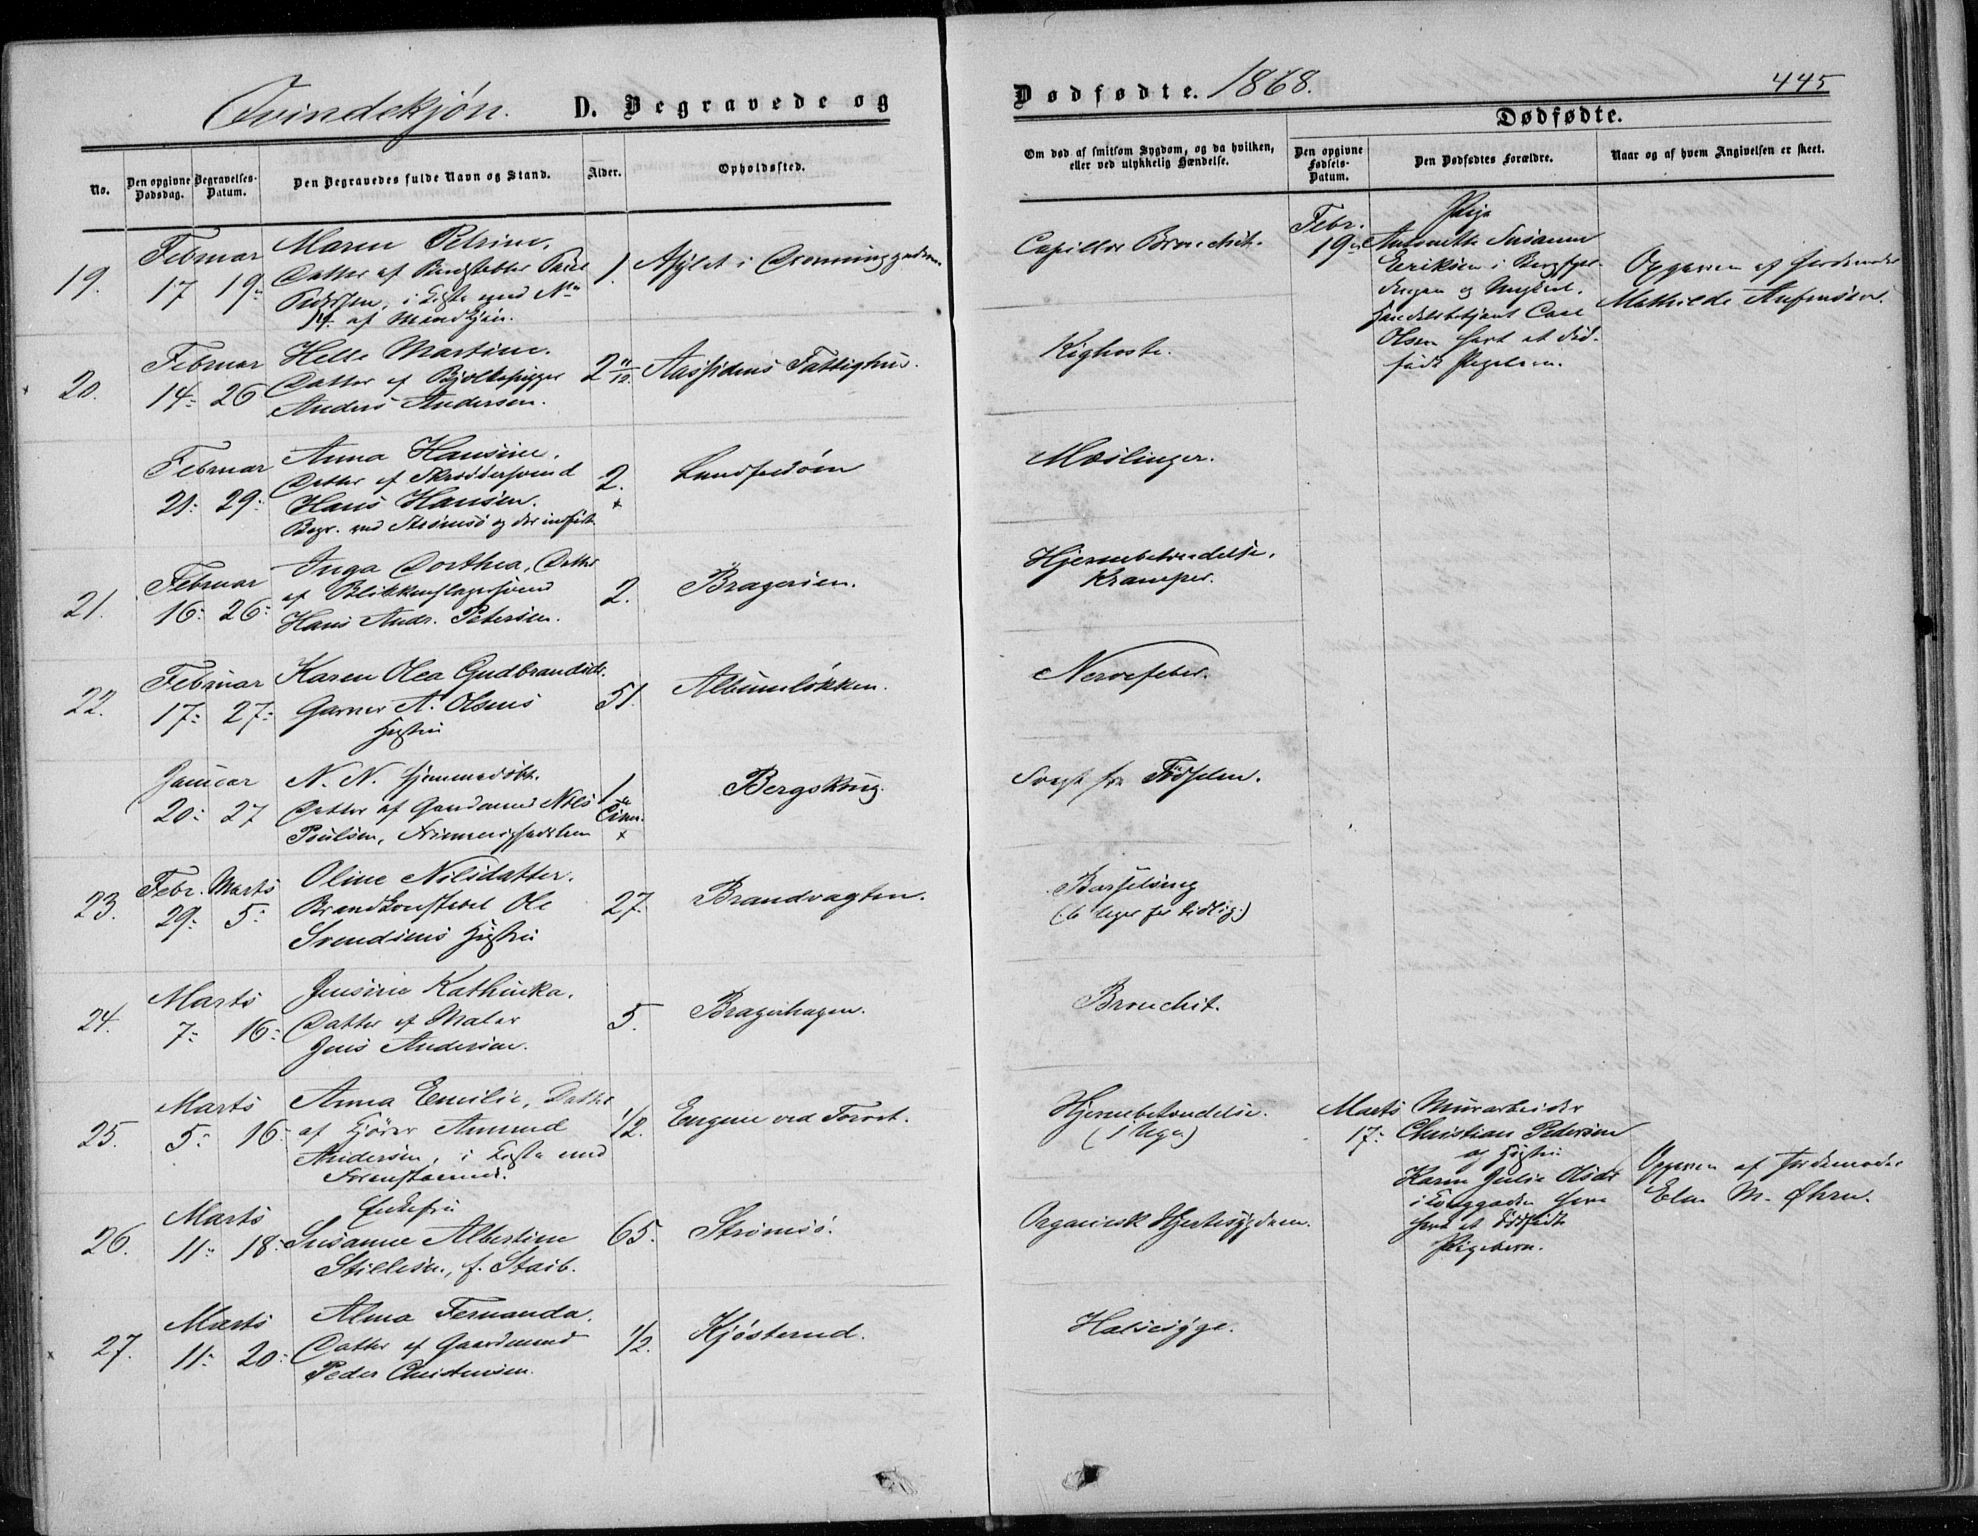 Qvindekjøn. D. Begravede og
No. Den opgivne Dødsdag. Begravelses-Datum. Den Begravedes fulde Navn og Stand. Alder. Opholdssted.
19. Februar 17 19de Maren Petrine,
Datter af Paul
Pedersen, i med No
14 af Mandkjøn.
1. Asylet i Dronninggaden
20. Februar 14: 26 Helle Martine.
Datter af
Anders Andersen.
2 11/12 Aassidens Fattighus.
Februar 21: 29: Anna Hansine,
Datter af Skræddersvend
Hans Hansen.
Begr. ved Strømsø og der indført
2. x
21. Februar 16: 26: Inga Dorthea, Datter
af Blikkenslagersvend
Hans Andr. Petersen.
2. Bragerøen.
22. Februar 17: 27: Karen Olea Gudbrandsdr.
Garver A. Olsens
Hustru
51. Albumsløkken.
Januar 20: 27 N. N. hjemmedøbt.
Datter af Gaardmand Nils
Poulsen,
1 x
Bergskoug.
23. Febr. 29: Marts 5: Oline Nilsdatter.
Brandkonstabel Ole
Svendsens Hustru
27. Brandvagten.
24. Marts 7: 16: Jensine Kathinka.
Datter af Maler
Jens Andersen.
5. Bragerhagen.
25. Marts 5: 16: Anna Emilie, Datter
af Kjører Amund
Andersen, i med
Foranstaaende.
1/2. Engene ved Torvet.
26. Marts 11: 18: Enkefru
Susanne Albertine
Stillesen, f. Staib.
65. Strømsø.
27. Marts 11: 20: Alma Fernanda.
Datter af Gaardmand
Peder Christensen.
1/2. Kjøsterud.
Dødfødte. 1868. 445
Dødfødte.
Om død af smitsom Sygdom, og da hvilken,
eller ved ulykkelig Hændelse.
Den opgivne Fødsels-Datum.
Den Dødfødtes Forældre.
Naar og af hvem Angivelsen er skeet.
Capillær Bronchit.
Kighoste.
Mæslinger.
Hjernebetændelse.
Kramper.
Nervefeber.
Svagt fra Fødselen.
Barselseng
(6 Uger for tidlig.)
Bronchit.
Hjernebetændelse.
(1 Uge.)
Organisk Hjertesygdom.
Halssyge.
Febr. 19de Pige
Antonette Susanne
Eriksen i
og Ungkarl.
Handelsbetjent Carl
Olsen havt et død-
født Pigebarn.
Opgaven af Jordemoder
Mathilde
Marts 17: Murarbeider
Christian Pedersen
og Hustru
Karen Julie Olsdr
i Konggaden have
havt et dødfødt
Pigebarn.
Opgaven af Jordemoder
Elen M. Øhrn.